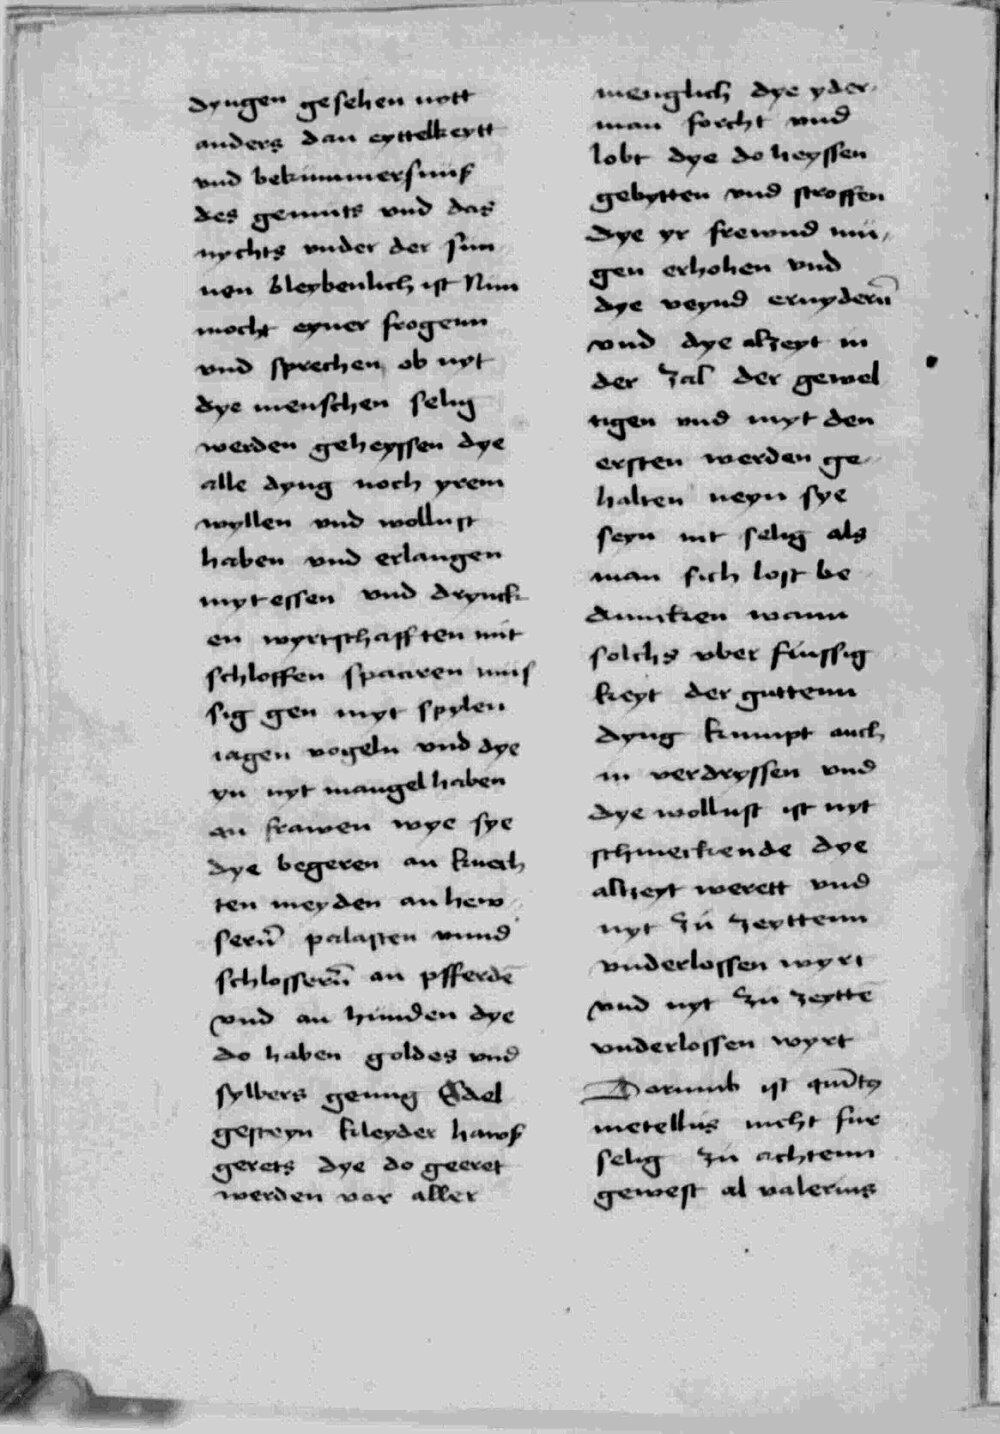 dyngen gesehen nott
anders dan eyttelkeytt
vnd bekummersnus
des gemuts vnd das
nychts vnder der sun
nen bleybenlich ist Nun
mocht eyner frogenn
vnd sprechen ob nyt
dye menschen selig
werden geheyssen dye
alle dyng noch yrem
wyllen vnd wollust
haben vnd erlangen
myt essen vnd drynck
en wyrtschafften mit
schloffen spaaren mus
sig gen myt spylen
iagen vogeln vnd dye
yn nyt mangel haben
an frawen wye sye
dye begeren an knech
ten meyden an hew
sern̄ palasten vnnd
schlossern̄ an pfferdē
vnd an hunden dye
do haben goldes vnd
sylbers genug Edel
gesteyn kleyder haws
gerets dye do geeret
werden vor aller
menglich dye yder
man forcht vnd
lobt dye do heyssen
gebytten vnd stroffen
dye yr frewnd mu
gen erhohen vnd
dye veynd ernydern̄
vnd dye alzeyt in
der zal der gewel
tigen vnd myt den
ersten werden ge
halten neyn sye
seyn nit selig als
man sich lost be
duncken wann
solchs vber flussig
keyt der guttenn
dyng kumpt auch
in verdryssen vnd
dye wollust ist nyt
schmeckende dye
altzeyt werett vnd
nyt zu zeyttenn
vnderlossen wyrt
vnd nyt zu zeyttē
vnderlossen wyrt
Dorumb ist quīty
metellus nicht fur
selig zu achtenn
gewest al valerius